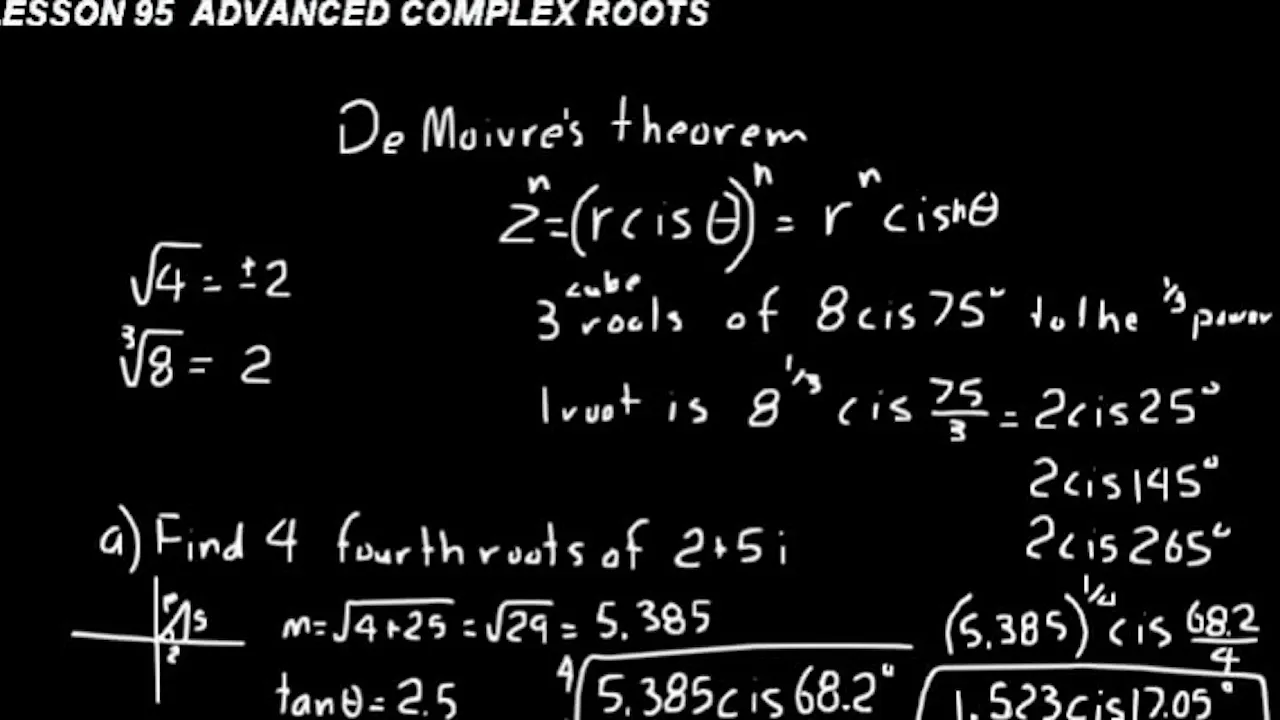 LESSON 95 ADVANCED COMPLEX ROOTS
De Moivre's theorem
zⁿ=(r cis θ)ⁿ = rⁿ cis nθ
√4 = ±2
∛8 = 2
3 cube roots of 8 cis 75° to the 1/3 power
1 root is 8^1/3 cis 75/3 = 2 cis 25°
2 cis 145°
2 cis 265°
a) Find 4 fourth roots of 2+5i
r 5
2
m=√4+25 = √29 = 5.385
(5.385)^1/4 cis 68.2/4
tanθ = 2.5
∜5.385 cis 68.2°
1.523 cis 17.05°